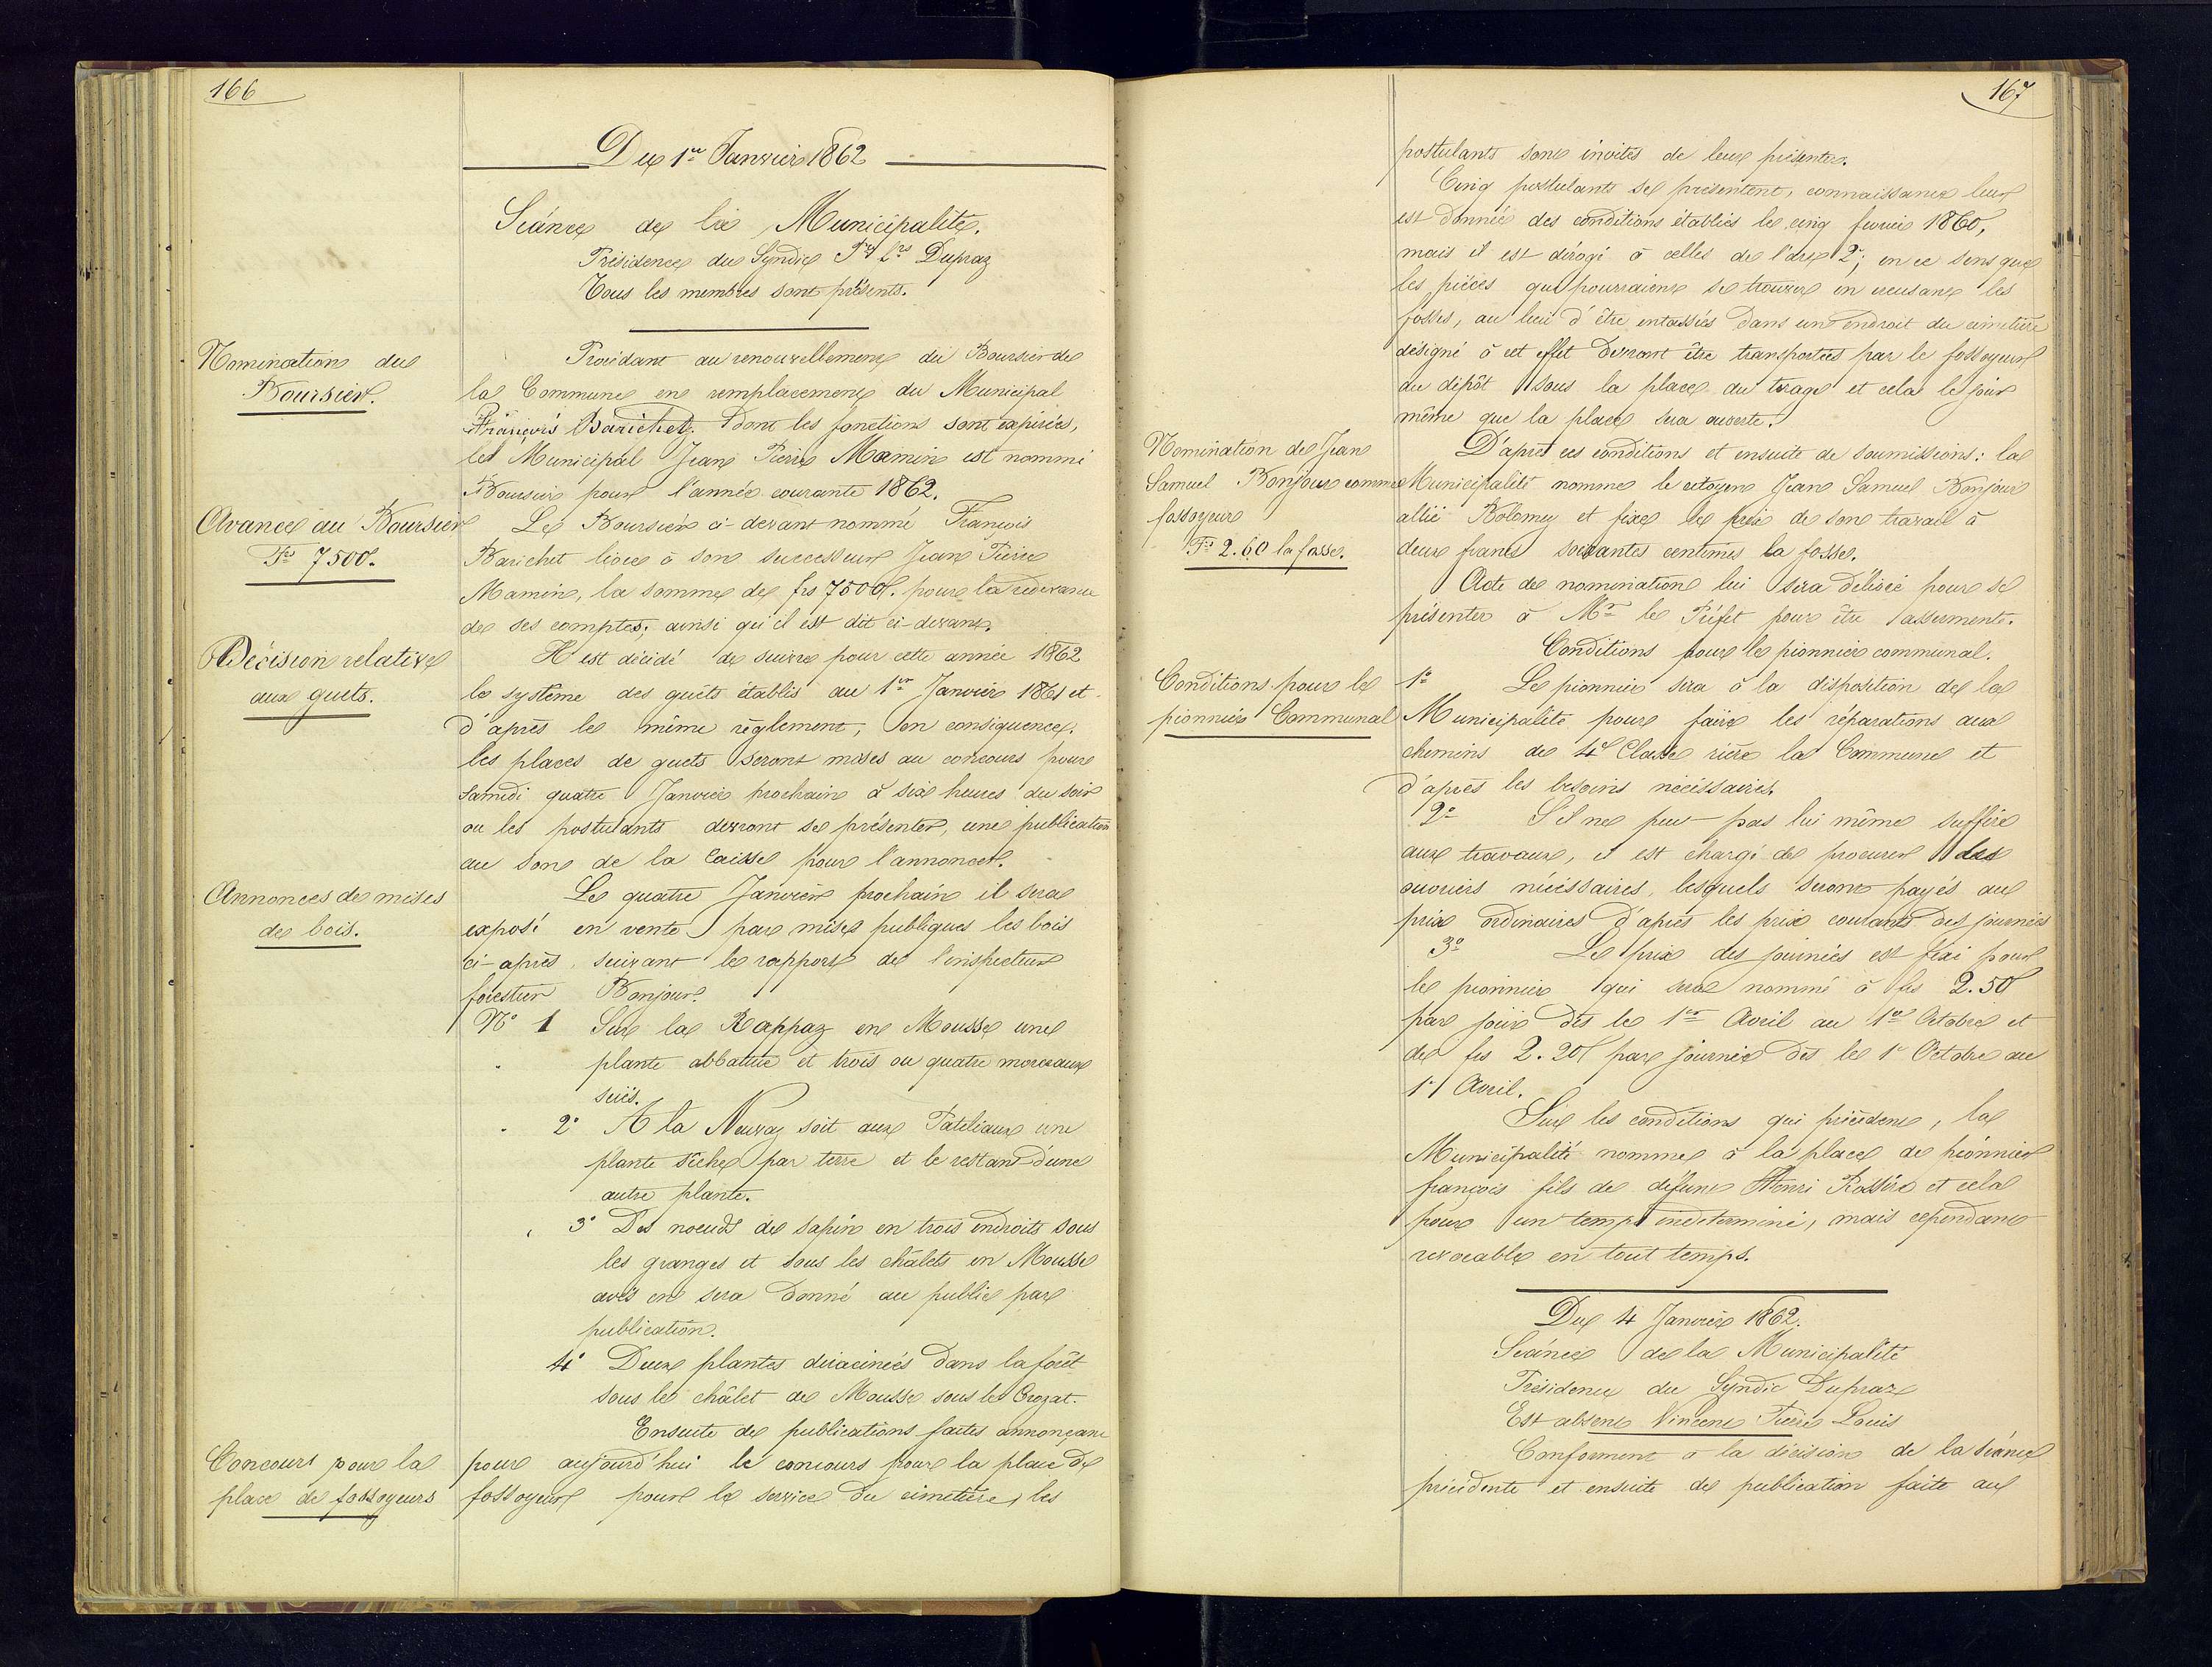 166
Du 1er Janvier 1862
Séance de la Municipalité.
Présidence du Syndic Pre Ls Dupraz
Tous les membres sont présents.
Nomination du
Boursier.
Procédant au renouvellement du Boursier de
la Commune en remplacement du Municipal
François Barichet. dont les fonctions sont expirées,
le Municipal Jean Pierre Mamin est nommé
Boursier pour l'année courante 1862.
Avance au Boursier
Fs 7500.
Le Boursier ci-devant nommé François
Barichet livre à son successeur Jean Pierre
Mamin, la somme de frs 7500. pour la redevance
de ses comptes; ainsi qu'il est dit ci-devant.
Décision relative
aux guets.
Il est décidé de suivre pour cette année 1862
le système des guets établis au 1er Janvier 1861 et
d'après le même règlement, en conséquence,
les places de guets seront mises au concours pour
samedi quatre Janvier prochain à six heures du soir
ou les postulants devront se présenter, une publication
au son de la caisse pour l'annoncer.
Annonces de mises
de bois.
Le quatre Janvier prochain il sera
exposé en vente par mises publiques les bois
ci-après suivant le rapport de l'inspecteur
forestier Bonjour.
No 1 Sur la Rappaz en Mousse une
plante abbatue et trois ou quatre morceaux
sciés.
2o A la Neuvaz soit aux Pateliaux une
plante sèche par terre et le restant d'une
autre plante.
3o Des noeuds de sapin en trois endroits sous
les granges et sous les châlets en Mousse
avis en sera donné au public par
publication.
4o Deux plantes déracinées dans la forêt
sous le châlet de Mousse sous le Crozat.
Concours pour la
place de fossoyeurs
Ensuite de publications faites annonçant
pour aujourd'hui le concours pour la place de
fossoyeur pour le service du cimetière, les
167
postulants sont invités de leur présenter.
Cinq postulants se présentent, connaissance leur
est donnée des conditions établies le cinq fevrier 1860,
mais il est dérogé à celles de l'art 2; en ce sens que
les pièces qui pourraient se trouver en creusant les
fosses, au lieu d'être entassées dans un endroit du cimetière
désigné à cet effet devront être transportées par le fossoyeur
au dépôt sous la place du tirage et cela le jour
même que la place sera ouverte.
Nomination de Jean
Samuel Bonjour comme
fossoyeur
Fs 2.60 la fosse.
D'après ces conditions et ensuite de soumissions: la
Municipalité nomme le citoyen Jean Samuel Bonjour
allié Bolomey et fixe le prix de son travail à
deux francs soixantes centimes la fosse.
Acte de nomination lui sera délivré pour se
présenter à Mr le Préfet pour être assermenté.
Conditions pour le pionnier communal.
Conditions pour le
pionnier Communal
1o Le pionnier sera à la disposition de la
Municipalité pour faire les réparations aux
chemins de 4e Classe rière la Commune et
d'après les besoins nécéssaires.
2o S'il ne peut pas lui même suffire
aux travaux, il est chargé de procurer des
ouvriers nécéssaires, lesquels seront payés aux
prix ordinaires d'après les prix courants des journées
3o Le prix des journées est fixé pour
le pionnier qui sera nommé à frs 2.50
par jour dès le 1er Avril au 1er Octobre et
de frs 2.20 par journée dès le 1er Octobre au
1er Avril.
Sur les conditions qui précèdent, la
Municipalité nomme à la place de pionnier
françois fils de défunt Henri Rossire et cela
pour un temps indéterminé, mais cependant
revocable en tout temps.
Du 4 Janvier 1862.
Séance de la Municipalité
Présidence du Syndic Dupraz
Est absent Vincent Pierre Louis
Conforment à la décision de la séance
précédente et ensuite de publication faite au